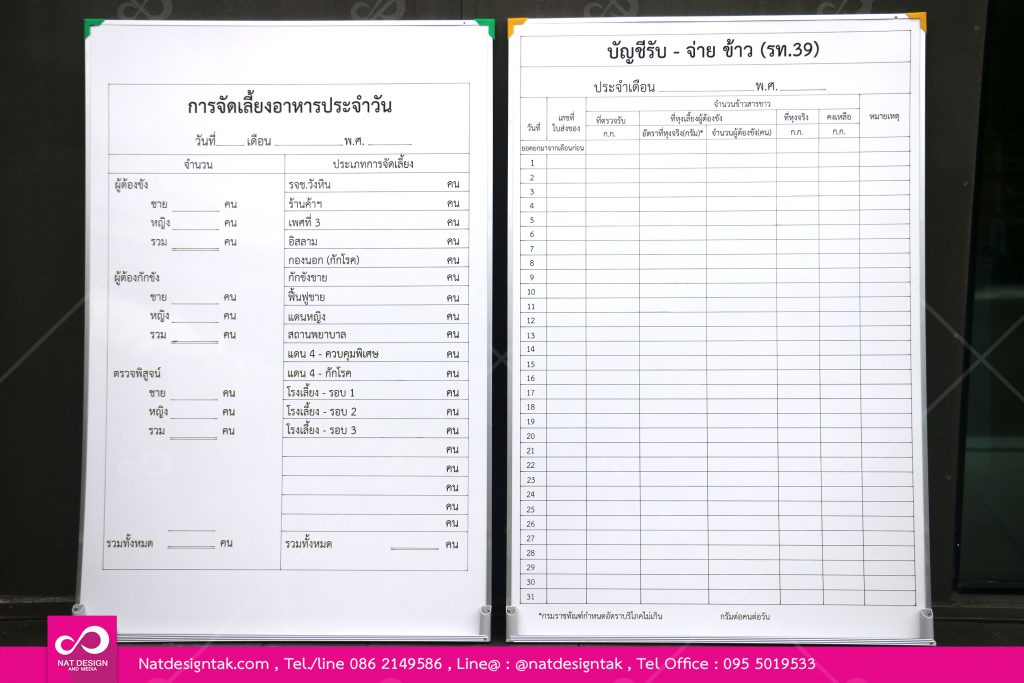 การจัดเลี้ยงอาหารประจำวัน
วันที่_____ เดือน _______________ พ.ศ. _________
จำนวน
ผู้ต้องขัง
ชาย ________ คน
หญิง ________ คน
รวม ________ คน
ผู้ต้องกักขัง
ชาย ________ คน
หญิง ________ คน
รวม ________ คน
ตรวจพิสูจน์
ชาย ________ คน
หญิง ________ คน
รวม ________ คน
รวมทั้งหมด ________ คน
ประเภทการจัดเลี้ยง
รจช.วังหิน คน
ร้านค้าฯ คน
เพศที่ 3 คน
อิสลาม คน
กองนอก (กักโรค) คน
กักขังชาย คน
ฟื้นฟูชาย คน
แดนหญิง คน
สถานพยาบาล คน
แดน 4 - ควบคุมพิเศษ คน
แดน 4 - กักโรค คน
โรงเลี้ยง - รอบ 1 คน
โรงเลี้ยง - รอบ 2 คน
โรงเลี้ยง - รอบ 3 คน
คน
คน
คน
คน
คน
รวมทั้งหมด ________ คน
บัญชีรับ - จ่าย ข้าว (รท.39)
ประจำเดือน _______________ พ.ศ. ________
วันที่
เลขที่
ใบส่งของ
จำนวนข้าวสารขาว
ที่ตรวจรับ
ก.ก.
ที่หุงเลี้ยงผู้ต้องขัง
อัตราที่หุงจริง(กรัม)* จำนวนผู้ต้องขัง(คน)
ที่หุงจริง
ก.ก.
คงเหลือ
ก.ก.
หมายเหตุ
ยอดยกมาจากเดือนก่อน
1
2
3
4
5
6
7
8
9
10
11
12
13
14
15
16
17
18
19
20
21
22
23
24
25
26
27
28
29
30
31
*กรมราชทัณฑ์กำหนดอัตราบริโภคไม่เกิน กรัมต่อคนต่อวัน
NAT DESIGN
AND MEDIA
Natdesigntak.com , Tel./line 086 2149586 , Line@ : @natdesigntak , Tel Office : 095 5019533